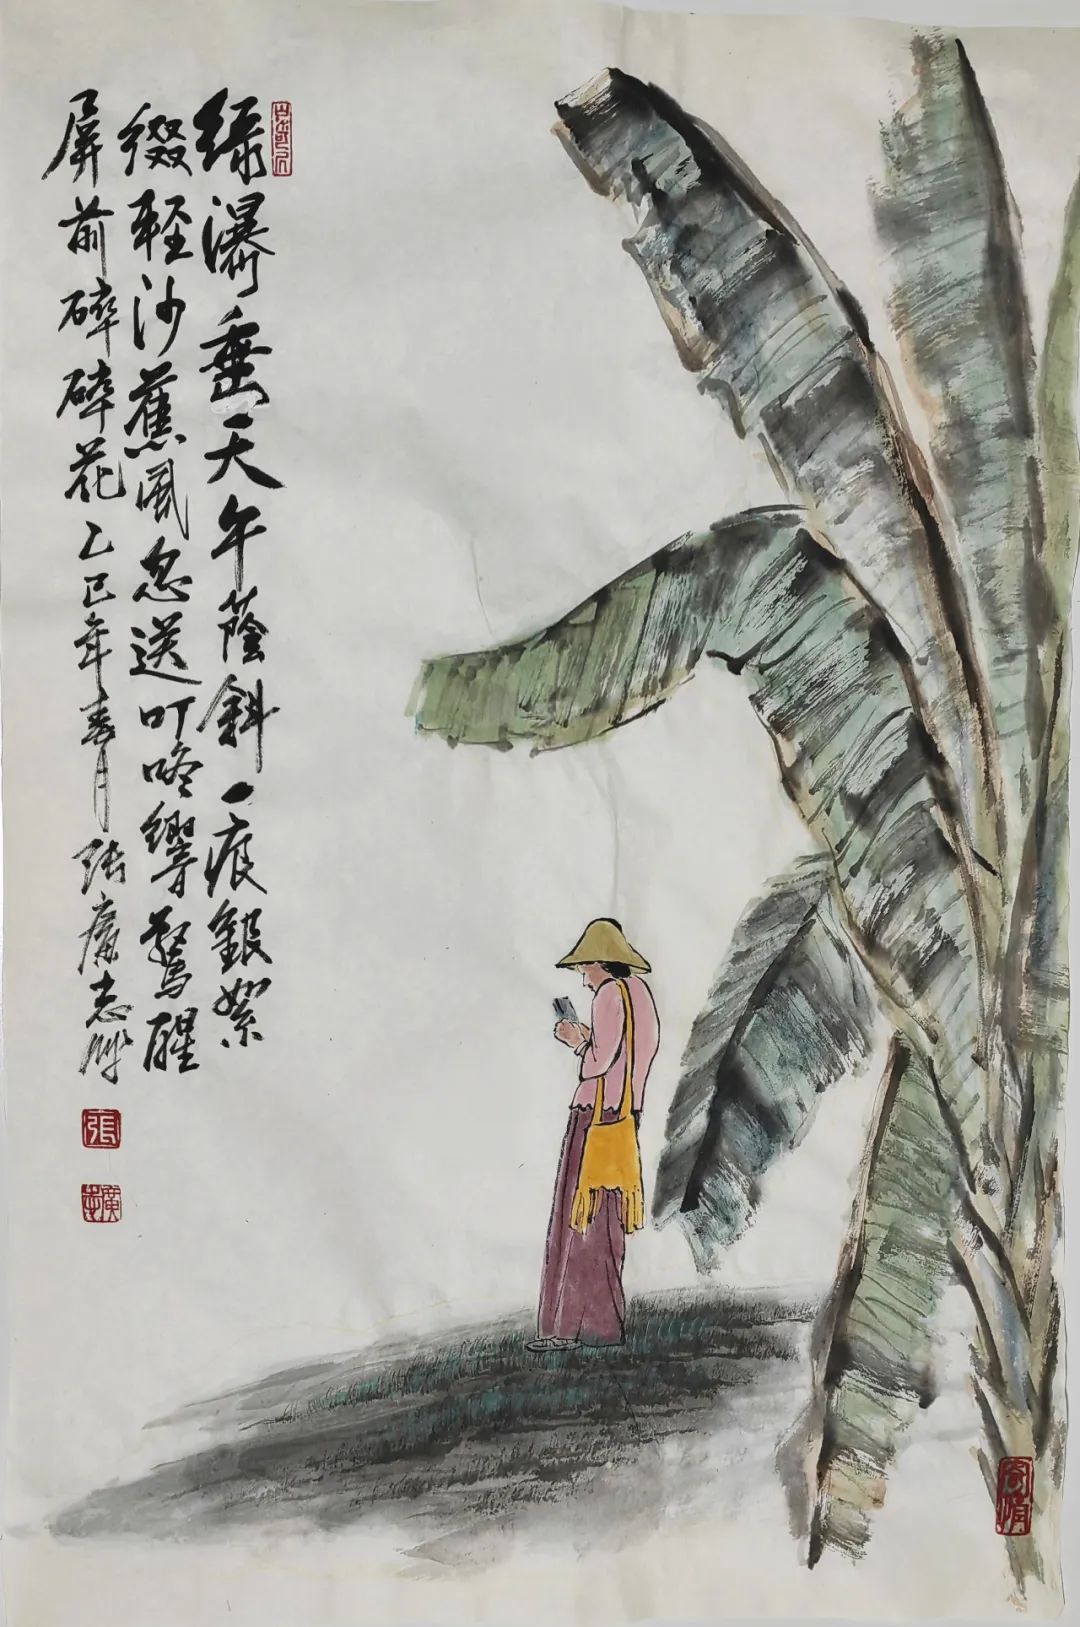 绿瀑垂天午蔭斜一痕銀絮
缀輕沙蕉風忽送叮咚響驚醒
屏前碎碎花乙巳年春月张廣志
張
廣志